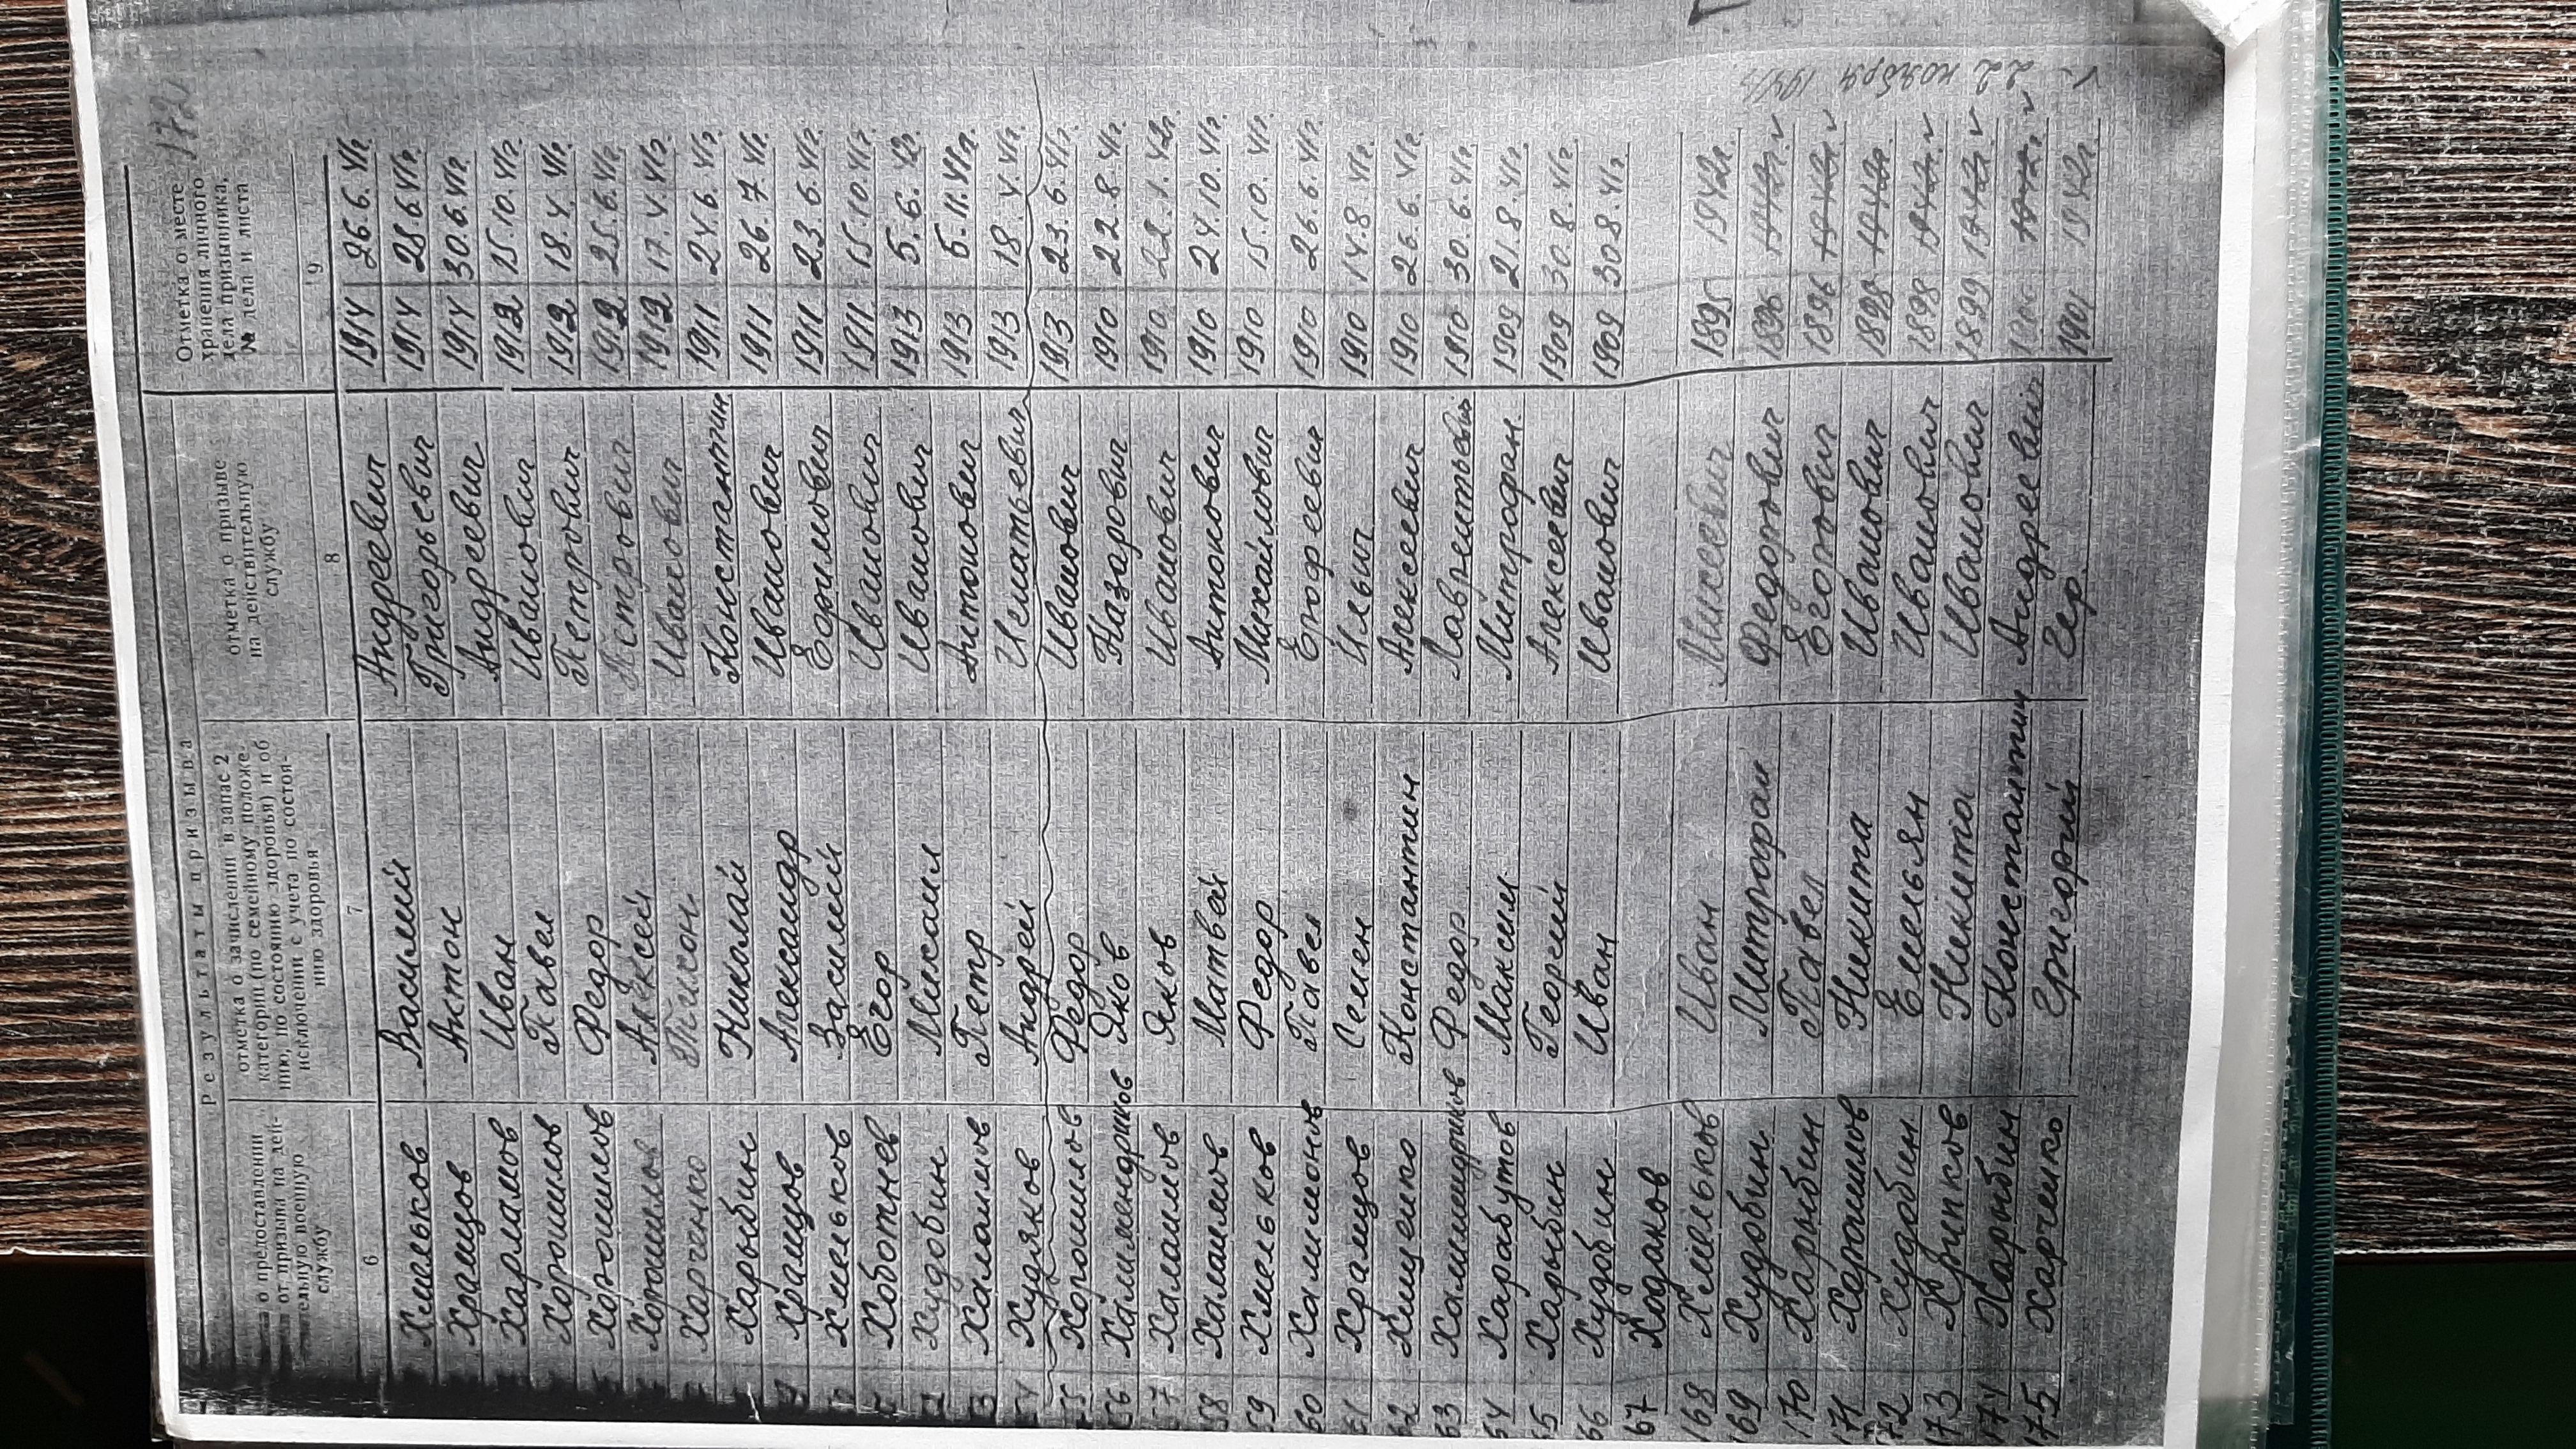 172
Результаты призыва
о предоставлении
от призыва на дей-
тельную военную
службу
отметка о зачислении в запас 2
категории (по семейному положе-
нию, по состоянию здоровья) и об
исключении с учета по состоя-
нию здоровья
отметка о призыве
на действительную
службу
Отметка о месте
хранения личного
дела призывника,
№ дела и листа
6 7 8 9
Хмельков Василий Андреевич 1914 26.6.41г.
Храмцов Антон Григорьевич 1914 28.6.41г.
Харламов Иван Андреевич 1914 30.6.41г.
Хорошилов Павел Иванович 1912 15.10.41г.
Хорошилов Федор Петрович 1912 18.4.41г.
Хорошилов Алексей Петрович 1912 25.6.41г.
Харченко Тихон Иванович 1912 17.4.41г.
Харыбин Николай Константин 1911 24.6.41г.
Храмцов Александр Иванович 1911 26.7.41г.
Хмельков Василий Ефимович 1911 23.6.41г.
Хоботнев Егор Иванович 1911 15.10.41г.
Худобин Михаил Иванович 1913 5.6.42г.
Халаимов Петр Антонович 1913 5.11.41г.
54 Худяков Андрей Игнатьевич 1913 18.4.41г.
55 Хорошилов Федор Иванович 1913 23.6.41г.
56 Халимендриков Яков Назарович 1910 22.8.41г.
57 Халаимов Яков Иванович 1910 22.1.42г.
58 Халаимов Матвей Антонович 1910 24.10.41г.
59 Хмельков Федор Михайлович 1910 15.10.41г.
60 Халимонов Павел Ерофеевич 1910 26.6.41г.
61 Храмцов Семен Ильич 1910 14.8.41г.
62 Хищенко Константин Алексеевич 1910 26.6.41г.
63 Халимендриков Федор Лаврентьевич 1910 30.6.41г.
64 Карабутов Максим Митрофан. 1909 21.8.41г.
65 Харыбин Георгий Алексеевич 1909 30.8.41г.
66 Худобин Иван Иванович 1909 30.8.41г.
167 Ходаков
168 Хмельков Иван Моисеевич 1895 1942г.
169 Худобин Митрофан Федотович 1896 1942г. v
170 Харыбин Павел Егорович 1896 1942г. v
171 Хорошилов Никита Иванович 1898 1942г.
172 Худобин Емельян Иванович 1898 1942г. v
173 Хрипков Никита Иванович 1899 1942г. v
174 Харыбин Константин Андреевич 1942г. v
175 Харченко Григорий Гер. 1901 1942г.
22 ноября 1941г.